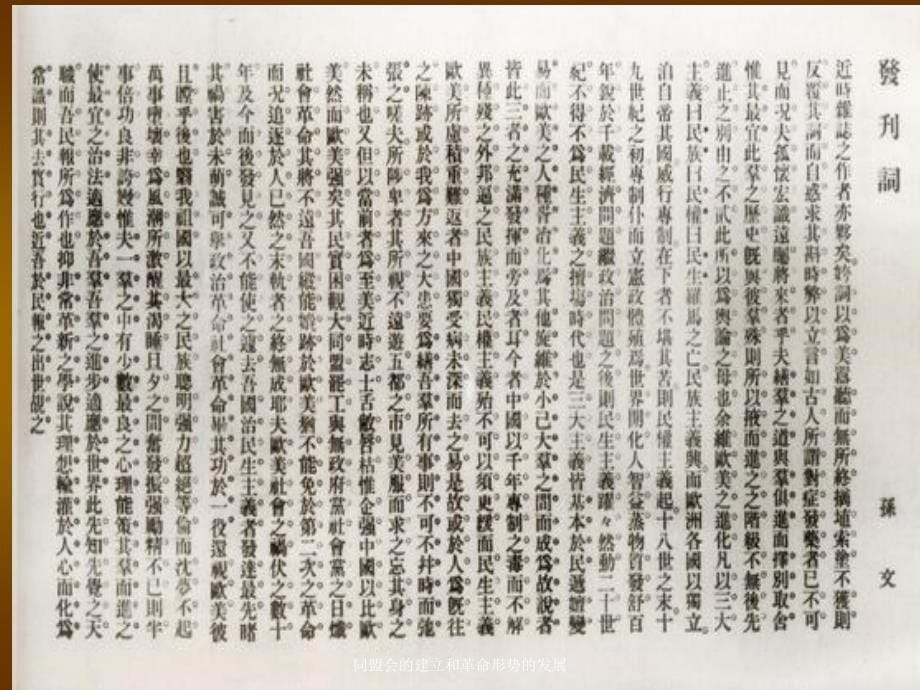 發刊詞
孫 文
近時雜誌之作者亦夥矣姱詞以為美囂聽而無所終摘埴索塗不獲則
反覆其詞而自惑求其斟時弊以立言如古人所謂對症發藥者已不可
見而況夫孤懷宏識遠矚將來者乎夫繕羣之道與羣俱進而擇別取舍
惟其最宜此羣之歷史既與彼羣殊則所以掖而進之之階級不無後先
進止之別由之不貳此所以為輿論之母也余維歐美之進化凡以三大
主義曰民族曰民權曰民生羅馬之亡民族主義興而歐洲各國以獨立
洎自帝其國威行專制在下者不堪其苦則民權主義起十八世之末十
九世紀之初專制仆而立憲政體殖焉世界開化人智益蒸物質發舒百
年銳於千載經濟問題繼政治問題之後則民生主義躍々然動二十世
紀不得不為民生主義之擅場時代也是三大主義皆基本於民遞嬗變
易而歐美之人種胥冶化焉其他旋維於小己大羣之間而成為故說者
皆此三者之充滿發揮而旁及者耳今者中國以千年專制之毒而不解
異種殘之外邦逼之民族主義民權主義殆不可以須臾緩而民生主義
歐美所慮積重難返者中國獨受病未深而去之易是故或於人為既往
之陳跡或於我為方來之大患要為繕吾羣所有事則不可不并時而弛
張之嗟夫所陟卑者其所視不遠遊五都之市見美服而求之忘其身之
未稱也又但以當前者為至美近時志士舌敝唇枯惟企强中國以比歐
美然而歐美强矣其民實困觀大同盟罷工與無政府黨社會黨之日熾
社會革命其將不遠吾國縱能媲跡於歐美猶不能免於第二次之革命
而況追逐於人已然之末軌者之終無成耶夫歐美社會之禍伏之數十
年及今而後發見之又不能使之遽去吾國治民生主義者發達最先睹
其禍害於未萌誠可舉政治革命社會革命畢其功於一役還視歐美彼
且瞠乎後也翳我祖國以最大之民族聰明强力超絕等倫而沈夢不起
萬事墮壞幸為風潮所激醒其渴睡旦夕之間奮發振强勵精不已則半
事倍功良非誇嫚惟夫一羣之中有少數最良之心理能策其羣而進之
使最宜之治法適應於吾羣吾羣之進步適應於世界此先知先覺之天
職而吾民報所為作也抑非常革新之學說其理想輸灌於人心而化為
常識則其去實行也近吾於民報之出世覘之
同盟会的建立和革命形势的发展